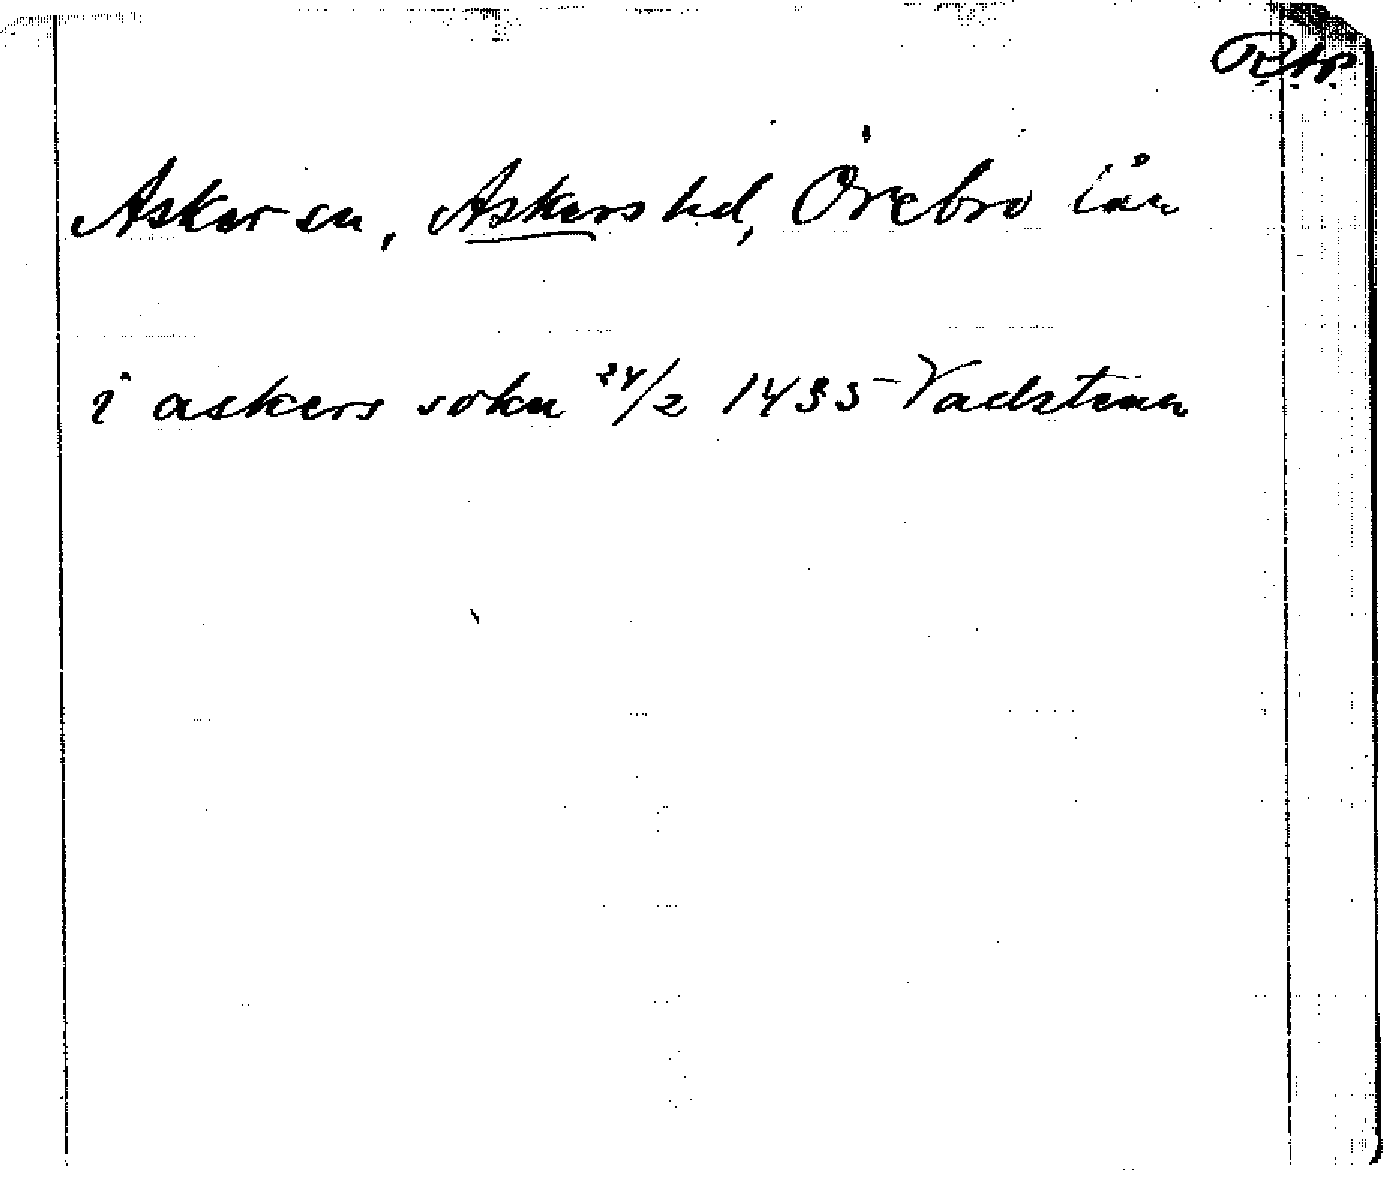 R.A.P.
Asker sn, Askers hd, Örebro län
i askers sokn 24/2 1435 Vadstena